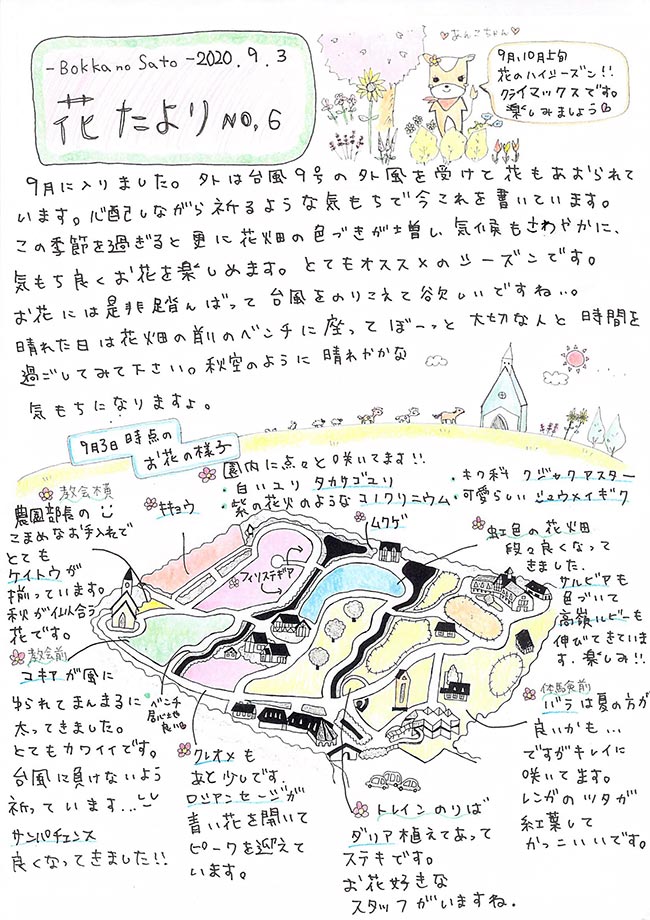 -Bokka no Sato-2020.9.3
花たよりNO.6
♡あんこちゃん♡
9月,10月上旬
花のハイシーズン!!
クライマックスです。
楽しみましょう
9月に入りました。外は台風9号の外風を受けて花もあおられて
います。心配しながら祈るような気もちで今これを書いています。
この季節を過ぎると更に花畑の色づきが増し、気候もさわやかに、
気もち良くお花を楽しめます。とてもオススメのシーズンです。
お花には是非踏んばって台風をのりこえて欲しいですね…。
晴れた日は花畑の前のベンチに座ってぼーっと大切な人と時間を
過ごしてみて下さい。秋空のように晴れやかな
気もちになりますよ。
9月3日時点の
お花の様子
園内に点々と咲いてます!!
・白いユリ タカサゴユリ
・紫の花火のようなコノクリニウム
・キク科 クジャクアスター
・可愛らしい シュウメイギク
教会横
農園部長の
こまめなお手入れで
とても
ケイトウが
揃っています。
秋が似合う
花です。
キキョウ
ムクゲ
フィリステギア
虹色の花畑
段々良くなって
きました。
サルビアも
色づいて
高嶺ルビーも
伸びてきていま
す。楽しみ!!
教会前
コキアが風に
ゆられてまんまるに
太ってきました。
とてもカワイイです。
台風に負けないよう
祈っています…
サンパチェンス
良くなってきました!!
・ベンチ
居心地
良い
クレオメも
あと少しです.
ロシアンセージが
青い花を開いて
ピークを迎えて
います。
トレインのりば
ダリア植えてあって
ステキです。
お花好きな
スタッフがいますね.
体験前
バラは夏の方が
良いかも…
ですがキレイに
咲いてます。
レンガのツタが
紅葉して
かっこいいです。